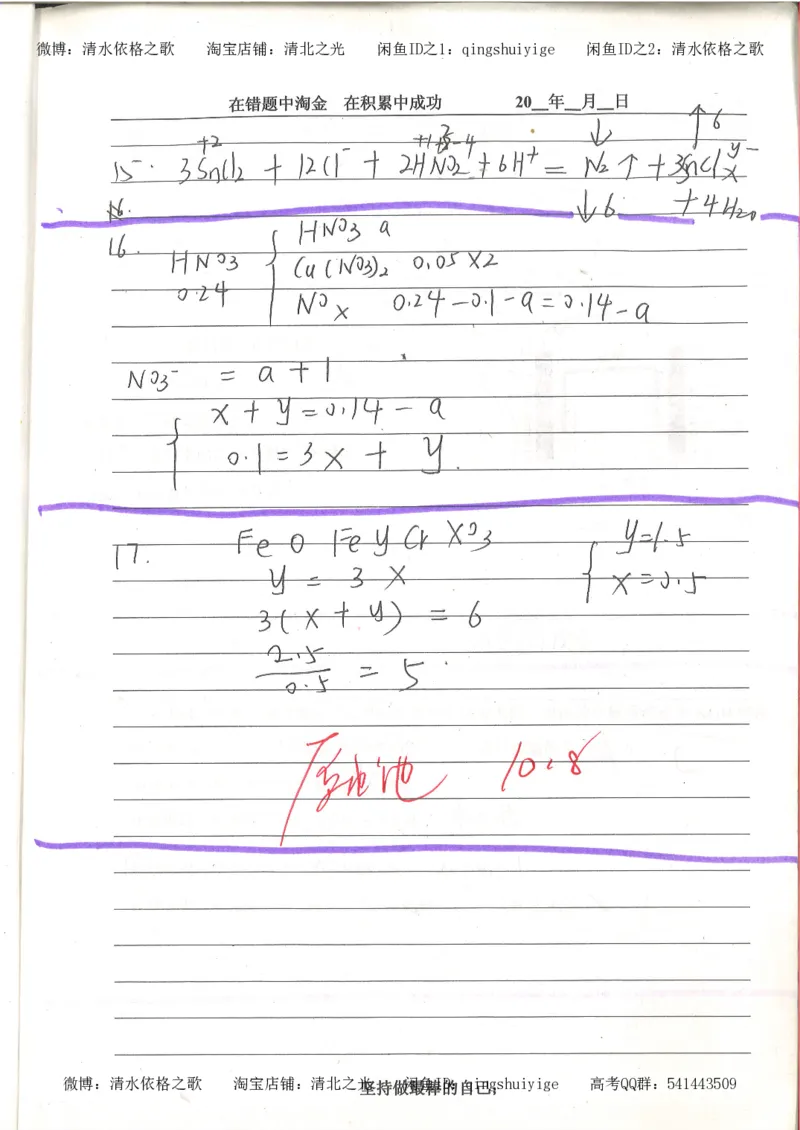 微博：清水依格之歌 淘宝店铺：清北之光 闲鱼ID之1：qingshuiyige 闲鱼ID之2：清水依格之歌
在错题中淘金 在积累中成功 20__年__月__日
+2 ↓ ↑6
15. 3SnCl2 + 12Cl⁻ + 2HNO2 + 6H⁺ = N2↑ + 3SnClx^y⁻
↓6 + 4H2O
16. HNO3 0.24 { HNO3 a
Cu(NO3)2 0.05×2
NOx 0.24-0.1-a=0.14-a
NO3⁻ = a+1
{ x+y=0.14-a
0.1=3x+y.
17. FeO FeyCrxO3 { y=1.5
y=3x x=0.5
3(x+y)=6
2.5/0.5=5
原电池 10.8
微博：清水依格之歌 淘宝店铺：清北之光 闲鱼ID：qingshuiyige 高考QQ群：541443509
坚持做最棒的自己；